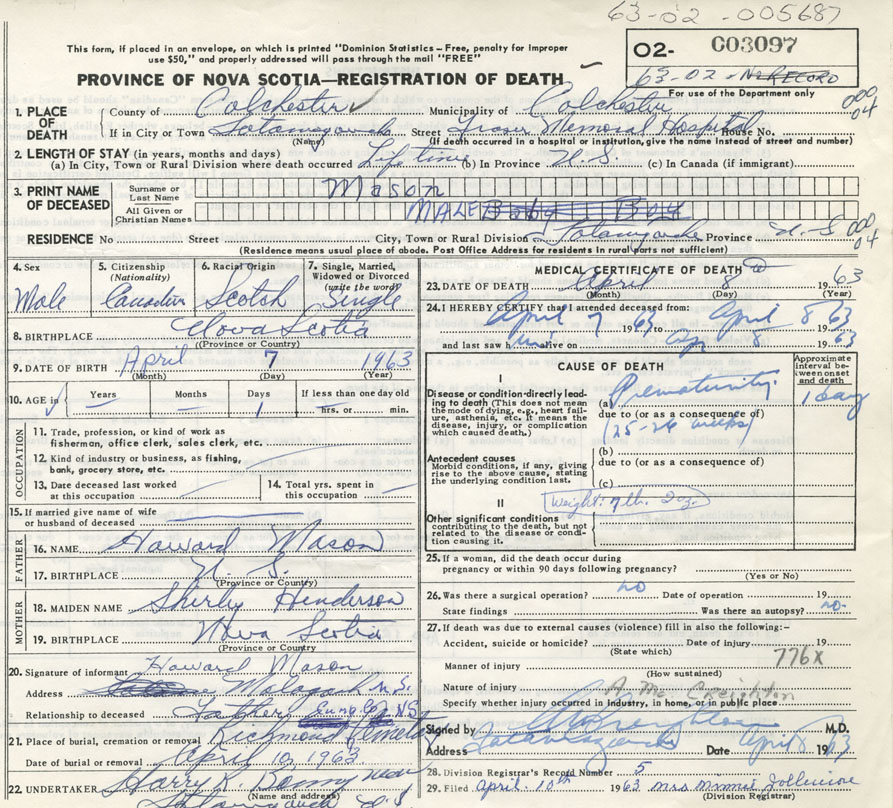 63-02-005687
This form, if placed in an envelope, on which is printed "Dominion Statistics - Free, penalty for improper
use $50," and properly addressed will pass through the mail "FREE"
O2- C03097
63-02-No RECORD
PROVINCE OF NOVA SCOTIA—REGISTRATION OF DEATH
For use of the Department only
1. PLACE OF DEATH County of Colchester Municipality of Colchester 000 04
If in City or Town Tatamagouche Street Fraser Memorial Hospital House No.
(Name) (If death occurred in a hospital or institution, give the name Instead of street and number)
2. LENGTH OF STAY (in years, months and days)
(a) In City, Town or Rural Division where death occurred Lifetime (b) In Province N.S. (c) In Canada (if immigrant)
3. PRINT NAME OF DECEASED Surname or Last Name Mason
All Given or Christian Names MALE Baby Boy
RESIDENCE No Street City, Town or Rural Division Tatamagouche Province N.S 000 04
(Residence means usual place of abode. Post Office Address for residents in rural parts not sufficient)
4. Sex 5. Citizenship (Nationality) 6. Racial Origin 7. Single, Married, Widowed or Divorced (write the word)
Male Canadian Scotch Single
8. BIRTHPLACE Nova Scotia
(Province or Country)
9. DATE OF BIRTH April 7 1963
(Month) (Day) (Year)
10. AGE in Years Months Days If less than one day old
1 hrs. or min.
OCCUPATION
11. Trade, profession, or kind of work as
fisherman, office clerk, sales clerk, etc.
12. Kind of industry or business, as fishing,
bank, grocery store, etc.
13. Date deceased last worked at this occupation 14. Total yrs. spent in this occupation
15. If married give name of wife
or husband of deceased
FATHER
16. NAME Howard Mason
17. BIRTHPLACE N.S.
(Province or Country)
MOTHER
18. MAIDEN NAME Shirley Henderson
19. BIRTHPLACE Nova Scotia
(Province or Country)
20. Signature of informant Howard Mason
Address Malagash N.S.
Relationship to deceased Father N.S.
21. Place of burial, cremation or removal Richmond Cemetery
Date of burial or removal April 10, 1963
22. UNDERTAKER Harry K.
(Name and address)
Tatamagouche N.S.
MEDICAL CERTIFICATE OF DEATH
23. DATE OF DEATH April 8 1963
(Month) (Day) (Year)
24. I HEREBY CERTIFY that I attended deceased from:
April 7 1963 to April 8 63
and last saw h im alive on Ap. 8 1963
CAUSE OF DEATH
Approximate interval between onset and death
I
Disease or condition directly leading to death (This does not mean the mode of dying, e.g., heart failure, asthenia, etc. It means the disease, injury, or complication which caused death.)
(a) Prematurity 1 day
due to (or as a consequence of)
(25-26 weeks)
Antecedent causes
Morbid conditions, if any, giving rise to the above cause, stating the underlying condition last.
(b)
due to (or as a consequence of)
(c)
II
Weight: lb. 2 oz.
Other significant conditions
contributing to the death, but not related to the disease or condition causing it.
25. If a woman, did the death occur during
pregnancy or within 90 days following pregnancy?
(Yes or No)
26. Was there a surgical operation? no Date of operation 19
State findings Was there an autopsy? no
27. If death was due to external causes (violence) fill in also the following:-
Accident, suicide or homicide? Date of injury 19
(State which)
Manner of injury 776X
(How sustained)
Nature of injury A. Mac Creighton
Specify whether injury occurred in Industry, in home, or in public place
Signed by Creighton M.D.
Address Tatamagouche Date April 8 1963
28. Division Registrar's Record Number 5
29. Filed April 10th 1963 Mrs Minnie
(Division Registrar)